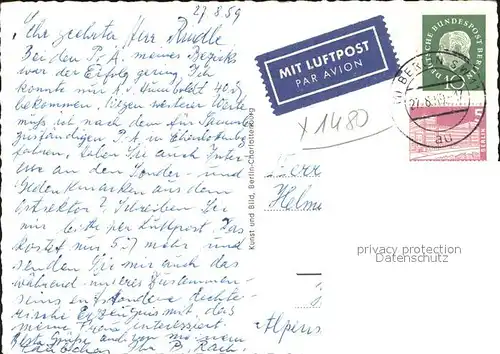 27.8.59
Sehr geehrter Herr Riedle
Bei den P.A. meines Bezirks
war der Erfolg gering. Ich
konnte nur A.v. Humboldt 40
bekommen. Wegen weiterer Werte
muß ich nach dem für Spandau
zuständigen P.A. in Charlottenburg
fahren. Haben Sie auch Inter-
esse an den Sonder- und
Gedenkmarken aus dem
Ostsektor? Schreiben Sie
mir bitte per Luftpost. Das
kostet nur 5 mehr und
senden Sie mir auch das
während unseres Zusammen-
seins entstandene
Erzeugnis mit, das
meine Frau interessiert
Beste Grüße auch von meinem
Ihr P. Rach.
MIT LUFTPOST
PAR AVION
DEUTSCHE BUNDESPOST BERLIN
10
BERLIN
27.8.59
au
BERLIN
X1480
Herr
Helmu
Alpens
Kunst und Bild, Berlin-Charlottenburg
privacy protection
Datenschutz